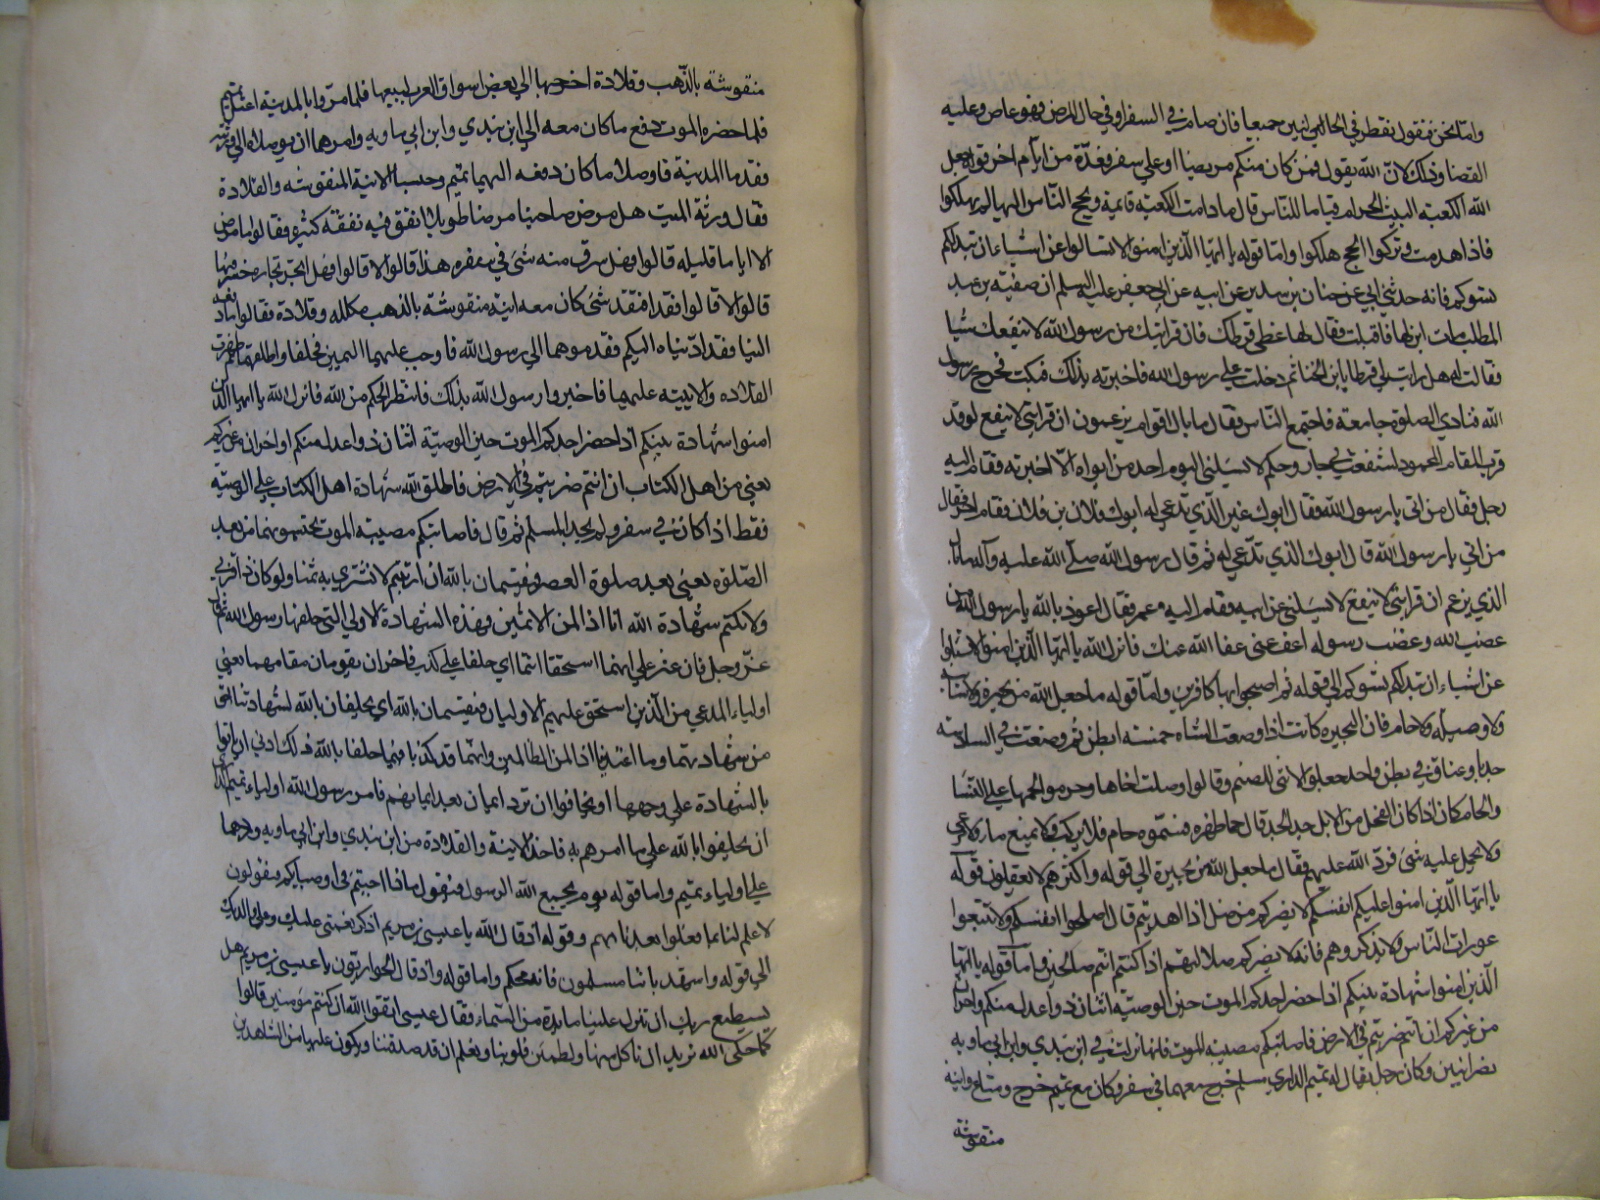 واما نحن فنقول نفطر في الحالتين جميعا فان صام في السفر او في حال المرض فهو عاص وعليه
القضا وذلك لان الله يقول فمن كان منكم مريضا او علي سفر فعدة من ايام اخر قوله جعل
الله الكعبه البيت الحرام قياما للناس قال ما دامت الكعبة قائمة ويحج الناس اليها لم يهلكوا
فاذا هدمت وتركوا الحج هلكوا واما قوله يا ايها الذين امنوا لا تسالوا عن اشياء ان تبد لكم
تسوكم فانه حدثني ابي عن حنان بن سدير عن ابيه عن ابي جعفر عليه السلم ان صفيه بن عبد
المطلب مات ابن لها فاقبلت فقال لها غطي قرطك فان قرابتك من رسول الله لا تنفعك شيا
فقالت له هل رايت لي قرطا يا بن اللخنا ثم دخلت علي رسول الله فاخبرته بذلك فبكت فخرج رسول
الله فنادي الصلوة جامعة فاجتمع الناس فقال ما بال اقوام يزعمون ان قرابتي لا ينفع لو قد
قرب المقام المحمود لشفعت في وحكم لا تسلني اليوم احد من ابواه الا اخبرته فقام اليه
رجل فقال من ابي يا رسول الله فقال ابوك غير الذي تدعي له ابوك فلان بن فلان فقام اخر فقال
من ابي يا رسول الله قال ابوك الذي تدعي له ثم قال رسول الله صلي الله عليه وآله ما بال
الذي يزعم ان قرابتي لا ينفع لا تسلني عن ابيه فقام اليه عمر فقال اعوذ بالله يا رسول الله من
غضب الله وغضب رسوله اعف عني عفا الله عنك فانزل الله يا ايها الذين امنوا لا تسئلوا
عن اشياء ان تبد لكم تسوكم الي قوله ثم اصبحوا بها كافرين واما قوله ما جعل الله من بحيرة ولا سائبة
ولا وصيلة ولا حام فان البحيره كانت اذا وضعت الشاه خمسه ابطن ثم وضعت في السادسه
جديا وعناق في بطن واحد جعلوا الانثي للصنم وقالوا وصلت اخاها وحرموا لحمها علي النسا
والحام كان اذا كان الفحل من الابل جد الجد قال حما ظهره فسموه حام فلا يركب ولا يمنع ماء ولا مرعي
ولا يحمل عليه شئ فرد الله عليهم فقال ما جعل الله من بحيرة الي قوله واكثرهم لا يعقلون قوله
يا ايها الذين امنوا عليكم انفسكم لا يضركم من ضل اذا اهديتم قال اصلحوا انفسكم ولا تتبعوا
عورات الناس ولا يذكروهم فانه لا يضركم ضلالتهم اذا كنتم انتم صالحين واما قوله يا ايها
الذين امنوا شهادة بينكم اذا حضر احدكم الموت حين الوصية اثنان ذوا عدل منكم واخران
من غيركم ان انتم ضربتم في الارض فاصابتكم مصيبة الموت فانها نزلت في ابن بندي وابن ابي ماويه
نصرانيين وكان رجل يقال له تميم الداري مسلم خرج معهما في سفر وكان مع تميم خرج ومتاع وانيه
منقوشة
منقوشة بالذهب وقلادة اخرجها الي بعض اسواق العرب ليبيعها فلما مروا بالمدينة اعتل تميم
فلما حضره الموت دفع ما كان معه الي ابن بندي وابن ابي ماويه وامرهما ان يوصلاه الي ورثته
فقدما المدينة فاوصلا ما كان دفعه اليهما تميم وحبسا الانية المنقوشه والقلادة
فقال ورثة الميت هل مرض صاحبنا مرضا طويلا انفق فيه نفقة كثيرة فقالوا ما مرض
الا اياما قليله قالوا فهل سرق منه شئ في سفره هذا قالوا لا قالوا فهل اتجر تجارة خسر فيها
قالوا لا قالوا فقد افتقد شئ كان معه انية منقوشة بالذهب مكلله وقلادة فقالوا ما دفعه
الينا فقد اديناه اليكم فقدموهما الي رسول الله فاوجب عليهما اليمين فحلفا واطلقهما ثم ظهرت
القلاده والانيته عليهما فاخبروا رسول الله بذلك فانتظر الحكم من الله فانزل الله يا ايها الذين
امنوا شهادة بينكم اذا حضر احدكم الموت حين الوصية اثنان ذوا عدل منكم او اخران من غيركم
يعني من اهل الكتاب ان انتم ضربتم في الارض فاطلق الله شهادة اهل الكتاب علي الوصية
فقط اذا كان في سفر ولم يجد المسلم ثم قال فاصابتكم مصيبة الموت تحبسونهما من بعد
الصلوة يعني بعد صلوة العصر فيقسمان بالله ان ارتبتم لا نشتري به ثمنا ولو كان ذا قربي
ولا نكتم شهادة الله انا اذا لمن الاثمين فهذه الشهادة الاولي التي حلفها رسول الله ثم قال
عز وجل فان عثر علي انهما استحقا اثما اي حلفا علي كذب فاخران يقومان مقامهما يعني
اولياء المدعي من الذين استحق عليهم الاوليان فيقسمان بالله اي يحلفان بالله لشهادتنا احق
من شهادتهما وما اعتدينا انا اذا لمن الظالمين وانهما قد كذبا فيما حلفا بالله ذلك ادني ان ياتوا
بالشهادة علي وجهها او يخافوا ان ترد ايمان بعد ايمانهم فامر رسول الله اولياء تميم الداري
ان يحلفوا بالله علي ما امرهم به فاخذ الانية والقلادة من ابن بندي وابن ابي ماويه وردهما
علي اولياء تميم واما قوله يوم يجمع الله الرسول فيقول ماذا اجبتم في اوصيائكم فيقولون
لا علم لنا بما فعلوا بعدنا بهم وقوله اذ قال الله يا عيسي بن مريم اذكر نعمتي عليك وعلي والدتك
الي قوله واشهد باننا مسلمون فانه محكم واما قوله واذ قال الحواريون يا عيسي بن مريم هل
يستطيع ربك ان تنزل علينا مايدة من السماء فقال عيسي اتقوا الله ان كنتم مومنين قالوا
كما حكي الله نريد ان ناكل منها وتطمئن قلوبنا ونعلم ان قد صدقتنا ونكون عليها من الشاهدين